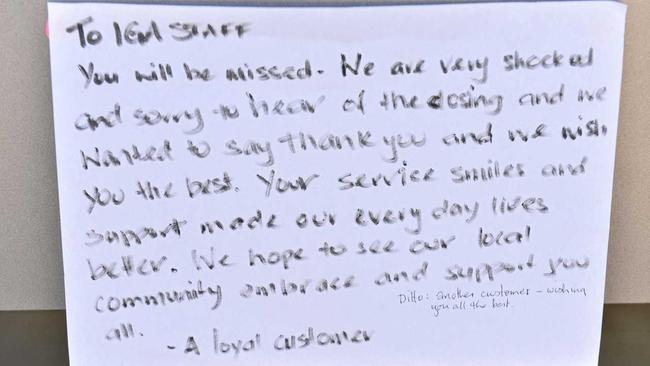 To IGA STAFF
You will be missed. We are very shocked
and sorry to hear of the closing and we
wanted to say thank you and we wish
you the best. Your service smiles and
support made our every day lives
better. We hope to see our local
community embrace and support you
all.
Ditto: another customer – wishing
you all the best.
- A loyal customer